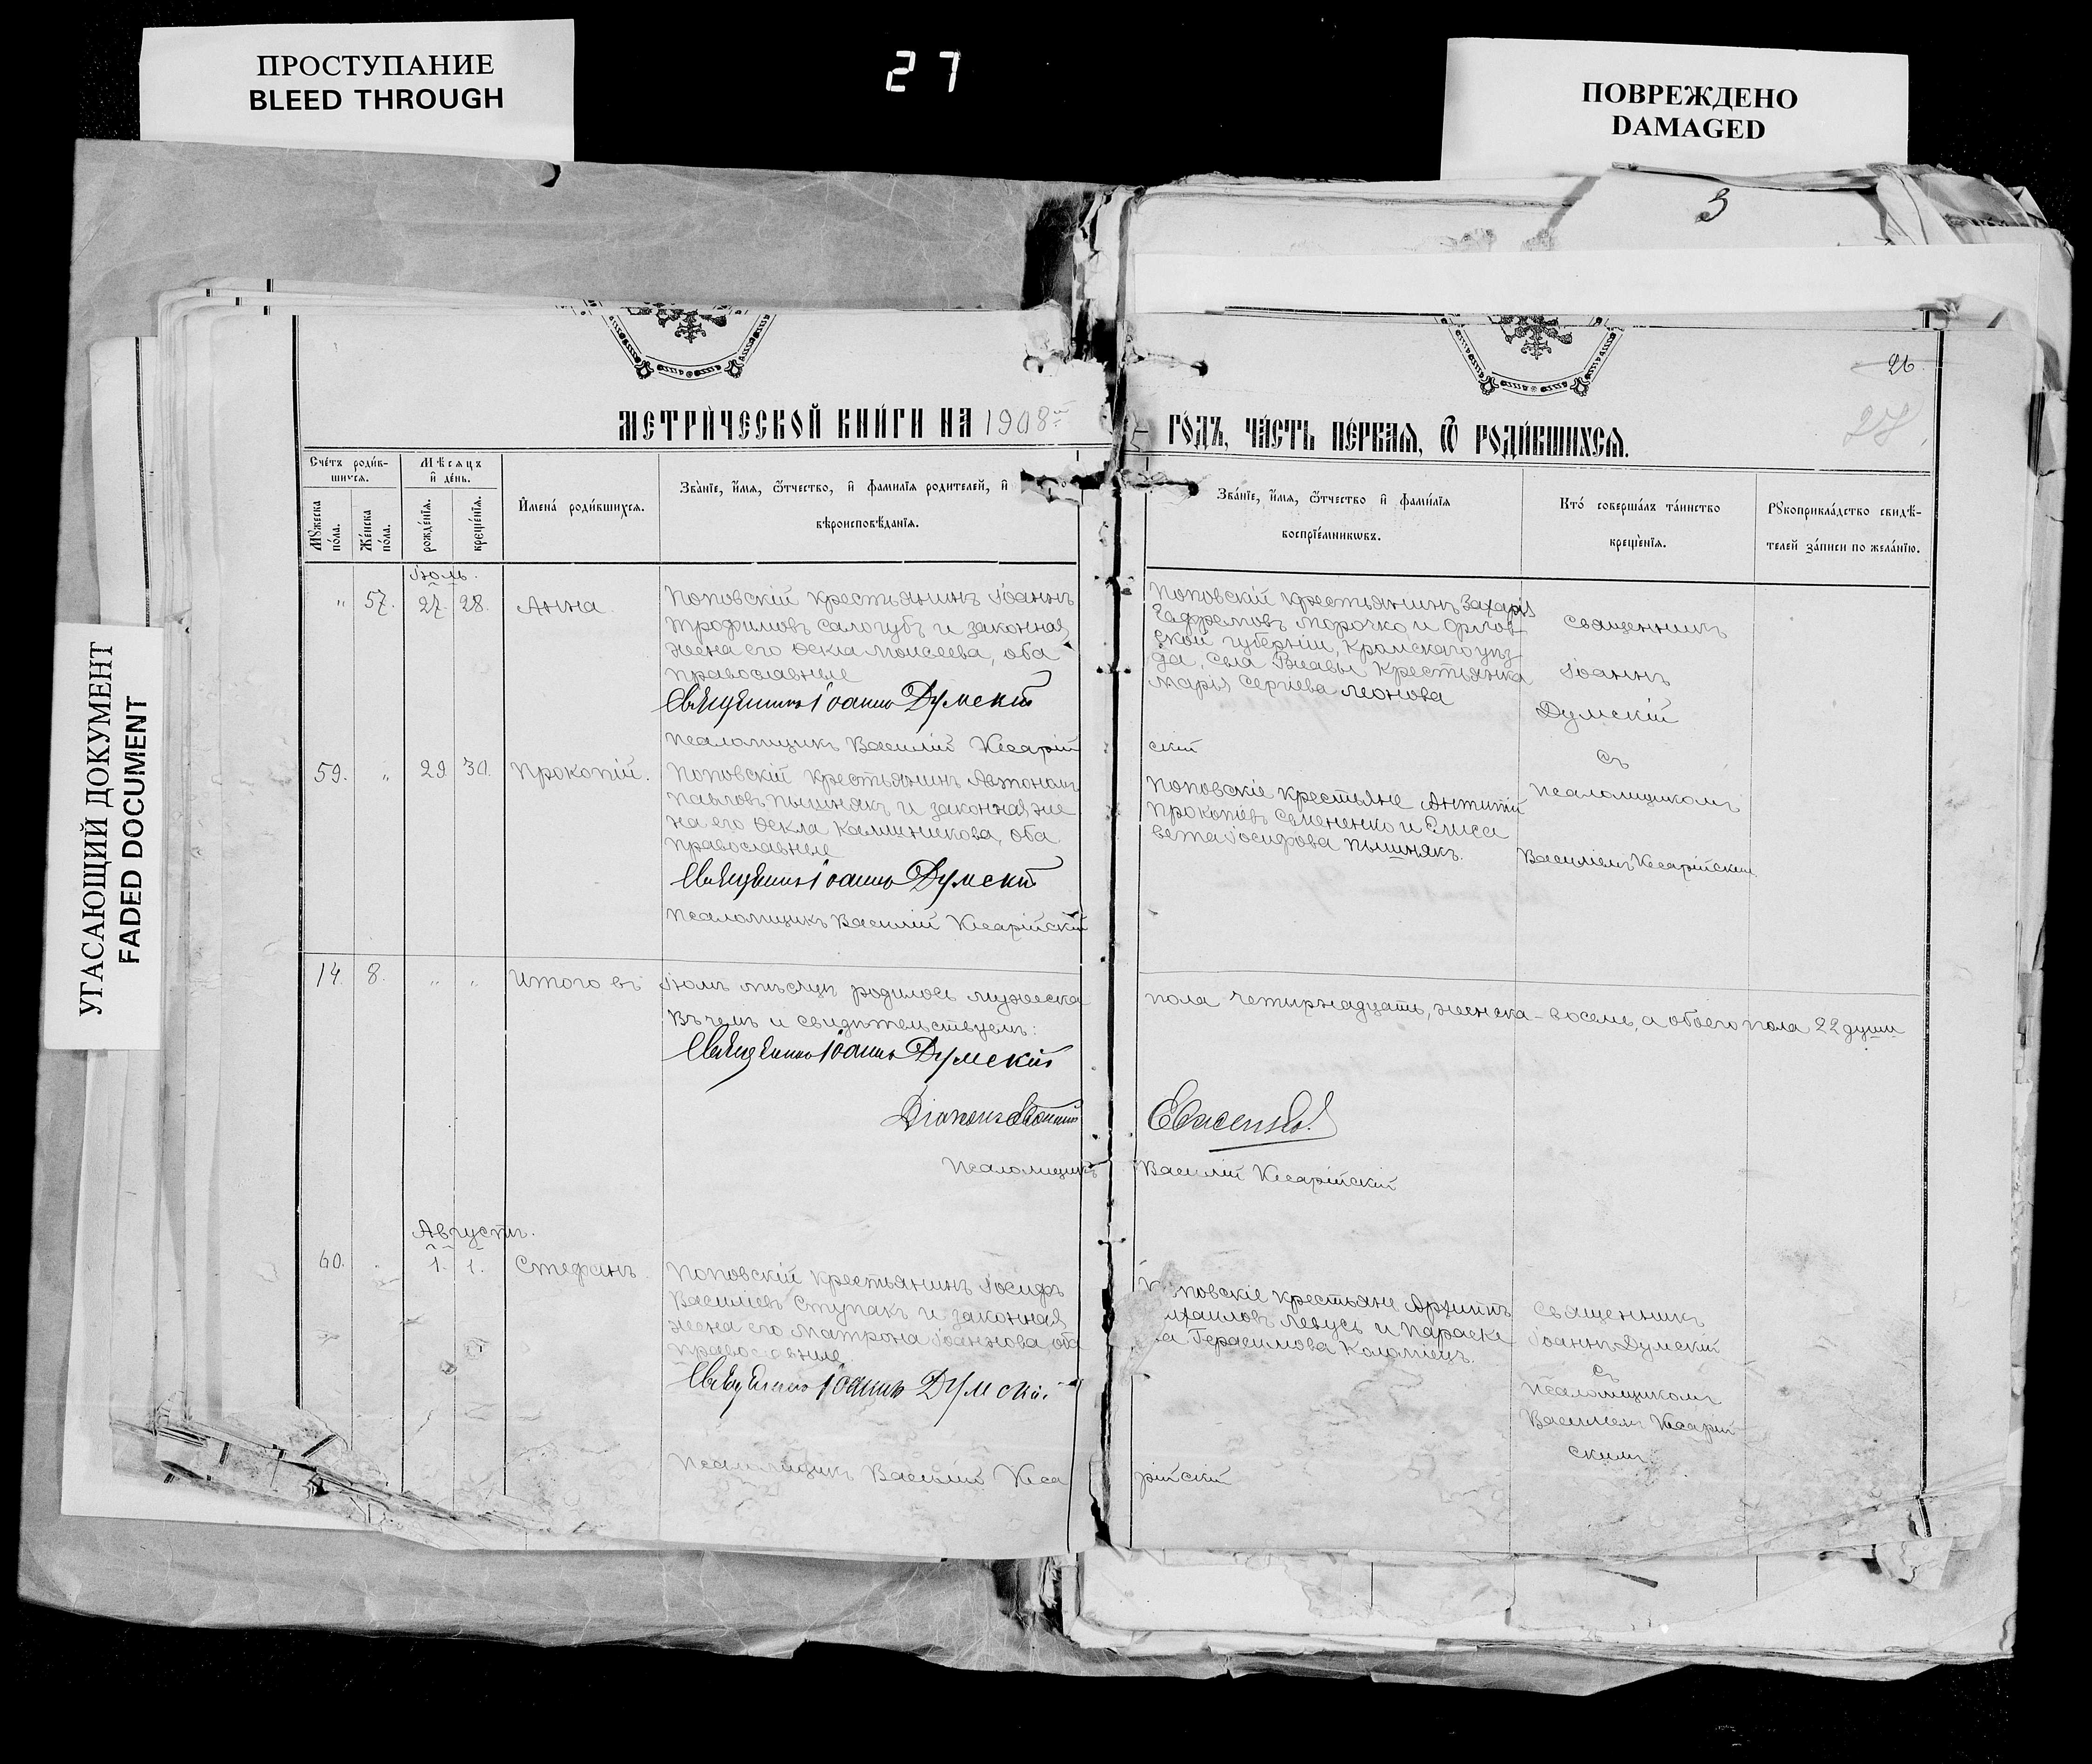 ПРОСТУПАНИЕ
BLEED THROUGH
27
ПОВРЕЖДЕНО
DAMAGED
3
УГАСАЮЩИЙ ДОКУМЕНТ
FADED DOCUMENT
26
27
МЕТРИ́ЧЕСКОЙ КНИ́ГИ НА 1908й
ГО́ДЪ, ЧА́СТЬ ПЕ́РВАЯ, Ѿ РОДИ́ВШИХСЯ.
Счетъ роди́в-
шихся.
Мѣсяцъ
и҆ де́нь.
Мꙋжеска по́ла.
Же́нска по́ла.
рожде́нїя.
креще́нїя.
И҆мена̀ роди́вшихся.
Зва́нїе, и҆́мя, ѻ҆́тчество, и҆ фамилїя родителей, и҆
вѣроисповѣ́данїя.
Зва́нїе, и҆́мя, ѻ҆́тчество и҆ фами́лїя
воспрїе́мникѡвъ.
Кто̀ соверша́лъ та́инство
креще́нїя.
Рꙋкоприкла́дство свидѣ́-
телей за́писи по жела́нїю.
Іюль.
" 57. 27. 28. Анна.
Поповскій крестьянинъ Іоаннъ
Трофимовъ Салогубъ и законная
жена его Ѳекла Моисеева, оба
православные
Священникъ Іоаннъ Думскій
Псаломщикъ Василій Кесарій
скій
Поповскій крестьянинъ Захарія
Евфремовъ Морочко и Орлов-
ской губерніи, Кромскаго уѣз-
да, села крестьянка
Марія Сергіева Леонова
Священникъ
Іоаннъ
Думскій
съ
Псаломщикомъ
Василіемъ Кесарійскимъ
59. " 29 30. Прокопій.
Поповскій крестьянинъ Автономъ
Павловъ Пышнякъ и законная же
на его Ѳекла Калинникова, оба
православные
Священникъ Іоаннъ Думскій
Псаломщикъ Василій Кесарійскій
Поповскіе крестьяне Антипій
Прокопіевъ Семененко и Елиса
вета Іосифова Пышнякъ.
14. 8. " " Итого въ Іюлѣ мѣсяцѣ родилось мужеска
пола четырнадцать, женска - восемь, а обоего пола 22 души
Въ чемъ и свидѣтельствуемъ:
Священникъ Іоаннъ Думскій
Діаконъ
Псаломщикъ Василій Кесарійскій
Августъ.
60. " 1. 1. Стефанъ.
Поповскій крестьянинъ Іосифъ
Василіевъ Ступакъ и законная
жена его Матрона Іоаннова, оба
православные
Священникъ Іоаннъ Думскій.
Псаломщикъ Василій Кеса
рійскій
повскіе крестьяне Архиппъ
ихаиловъ Левусь и Параске
а Герасимова Коломіецъ.
Священникъ
Іоаннъ Думскій
съ
Псаломщикомъ
Василіемъ Кесарій-
скимъ